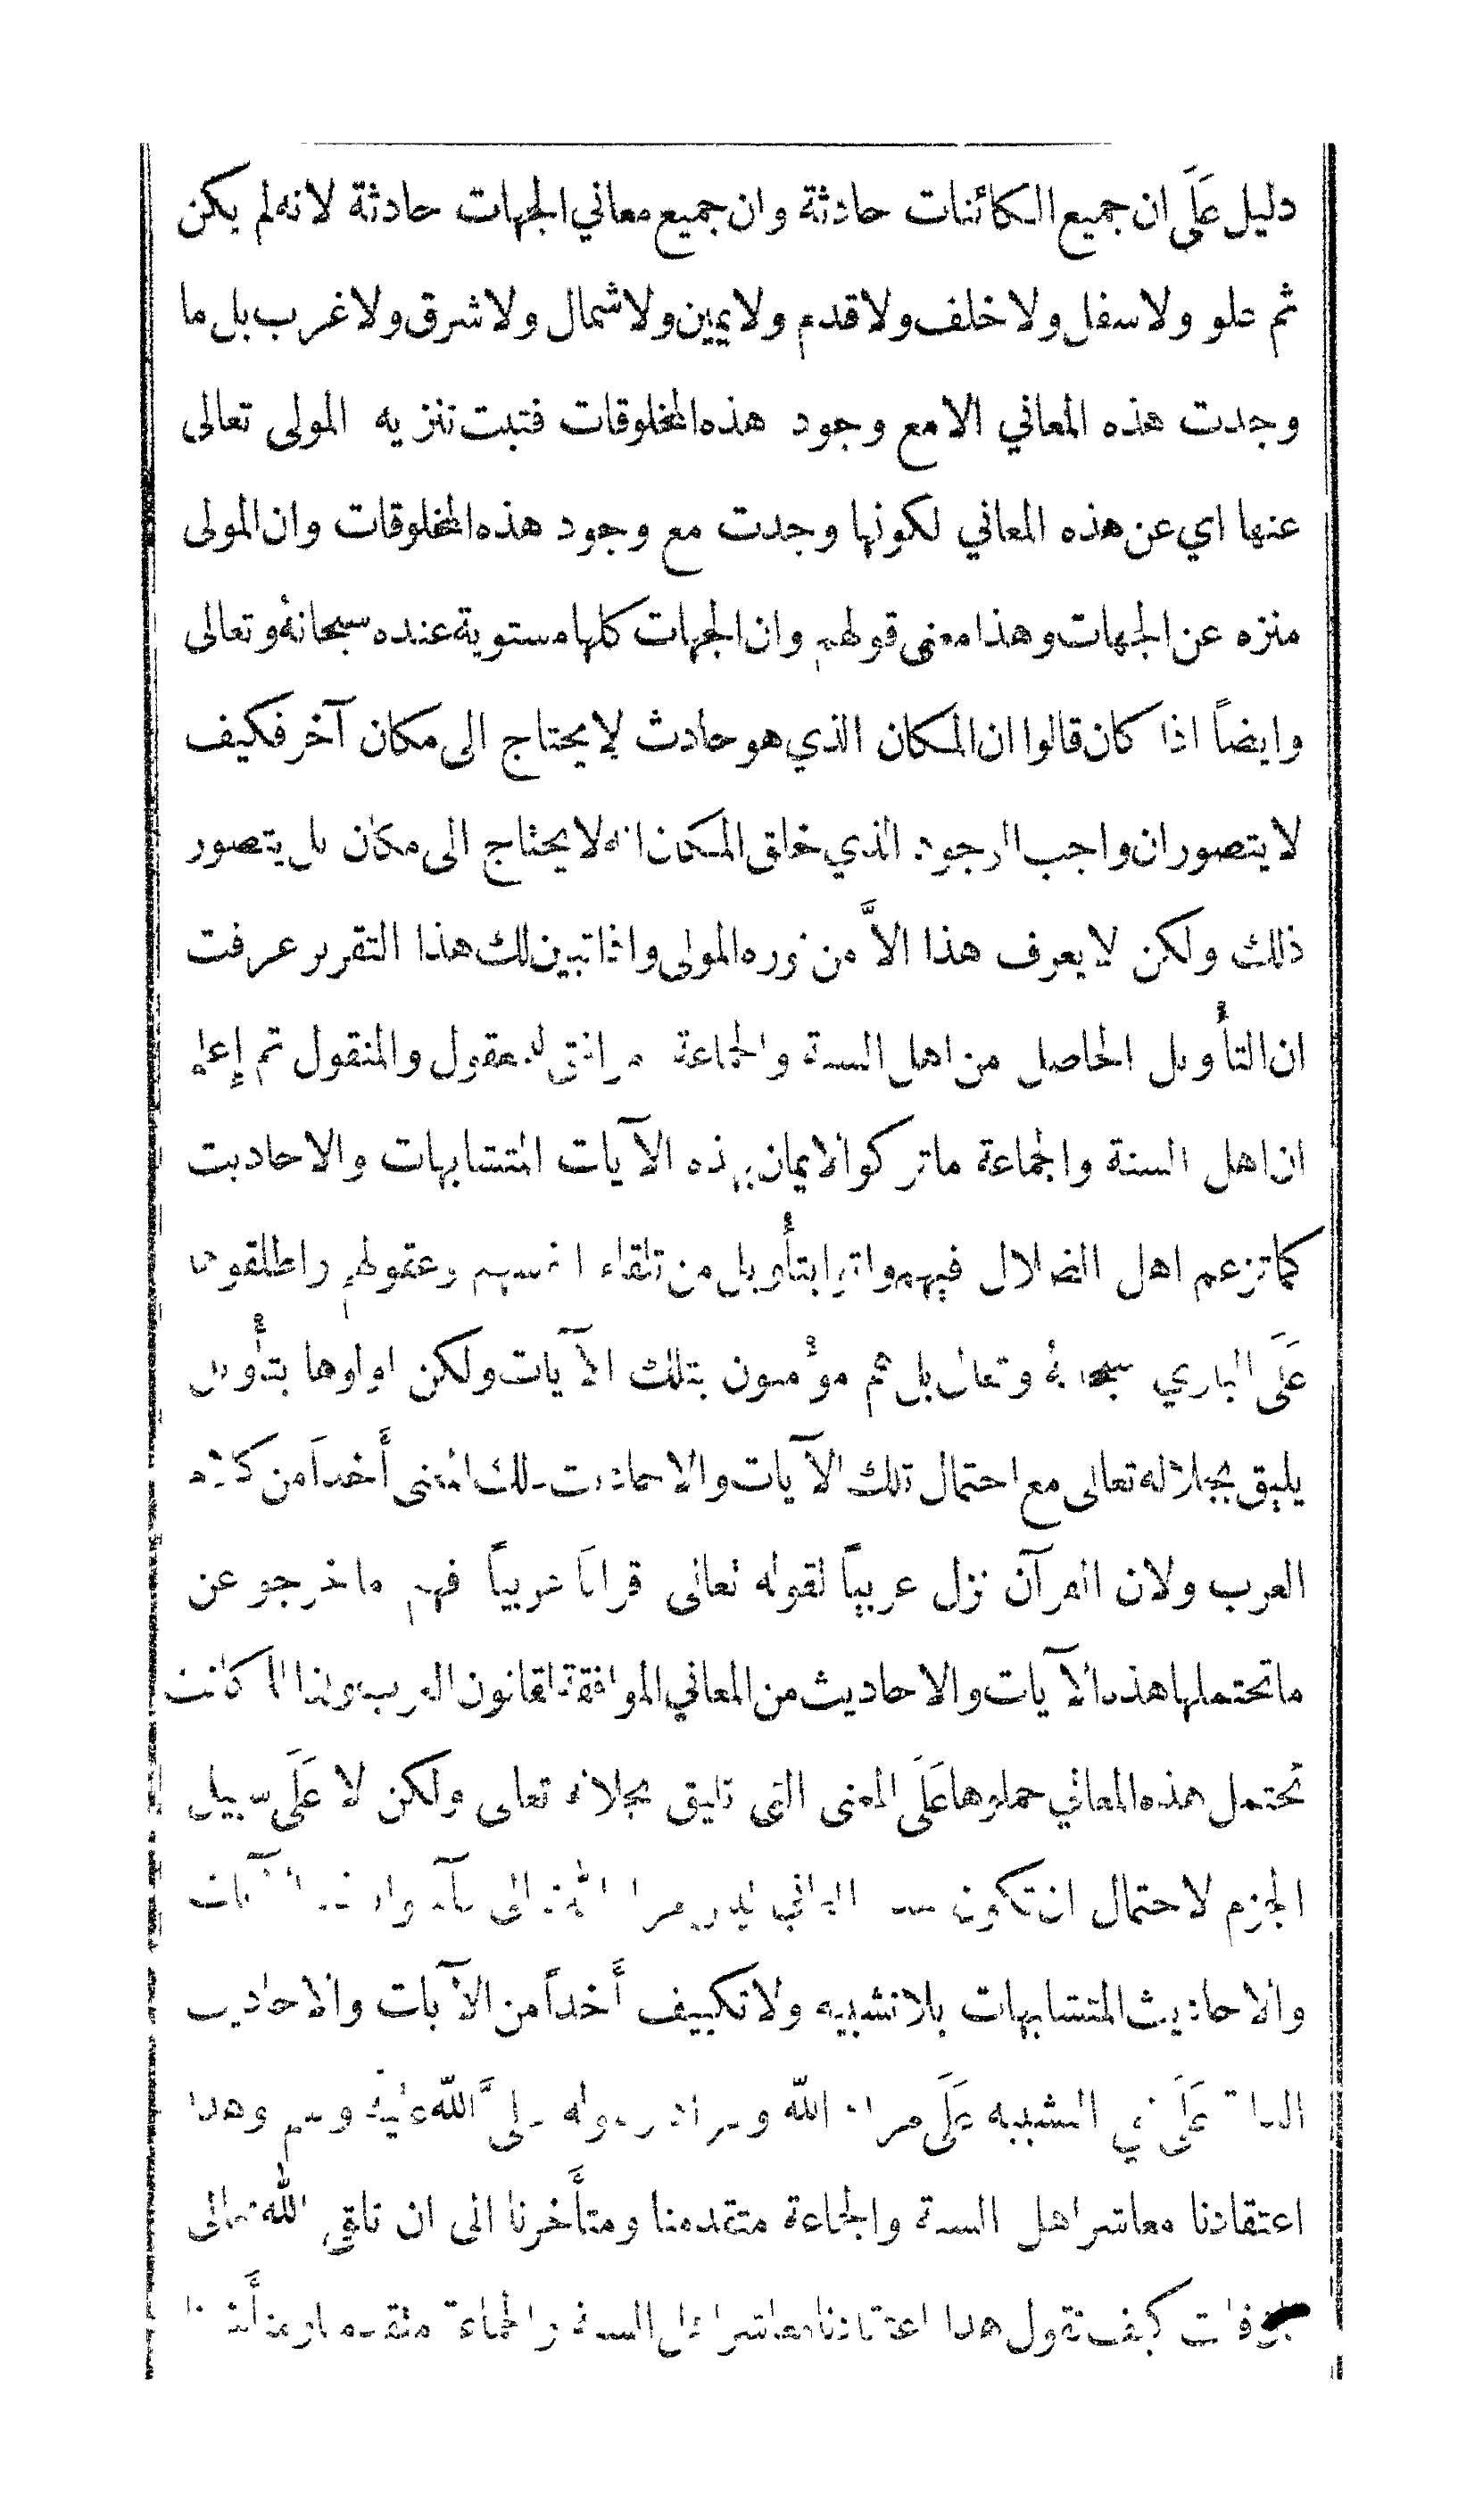 دليل عَلَى ان جميع الكائنات حادثة وان جميع معاني الجهات حادثة لانه لم يكن
ثم علو ولا سفل ولا خلف ولا قدم ولا يمين ولا شمال ولا شرق ولا غرب بل ما
وجدت هذه المعاني الا مع وجود هذه المخلوقات فثبت تنزيه المولى تعالى
عنها اي عن هذه المعاني لكونها وجدت مع وجود هذه المخلوقات وان المولى
منزه عن الجهات وهذا معنى قولهم وان الجهات كلها مستوية عنده سبحانهُ وتعالى
وايضاً اذا كان قالوا ان المكان الذي هو حادث لا يحتاج الى مكان آخر فكيف
لا يتصور ان واجب الوجود الذي خلق المكان انه لا يحتاج الى مكان بل يتصور
ذلك ولكن لا يعرف هذا الاَّ من نوره المولى واذا تبين لك هذا التقرير عرفت
ان التأويل الحاصل من اهل السنة والجماعة موافق للمعقول والمنقول ثم إعلم
ان اهل السنة والجماعة ما تركوا الايمان بهذه الآيات المتشابهات والاحاديث
كما تزعم اهل الضلال فيهم واتوا بتأويل من تلقاء انفسهم وعقولهم واطلقوه
عَلَى الباري سبحانهُ وتعالى بل هم مؤمنون بتلك الآيات ولكن اولوها بتأويل
يليق بجلاله تعالى مع احتمال تلك الآيات والاحاديث لذلك المعنى أخذاً من كلام
العرب ولان القرآن نزل عربياً لقوله تعالى قرانا عربياً فهم ما خرجو عن
ما تحتملها هذه الآيات والاحاديث من المعاني الموافقة لقانون العرب ولذا لما كانت
تحتمل هذه المعاني حملوها عَلَى المعنى التي تليق بجلاله تعالى ولكن لا عَلَى سبيل
الجزم لاحتمال ان تكون هذه المعاني غير مراد الله تعالى الآيات
والاحاديث المتشابهات بلا تشبيه ولا تكييف أخذاً من الآيات والاحاديث
عَلَى نفي التشبيه عَلَى مراد الله ومراد رسوله صلى اللهُ عليه وسلم وهذا
اعتقادنا معاشر اهل السنة والجماعة متقدمنا ومتأخرنا الى ان نلقى الله تعالى
كيف تقول هذا اعتقادنا معاشر اهل السنة والجماعة متقدمنا ومتأخرنا